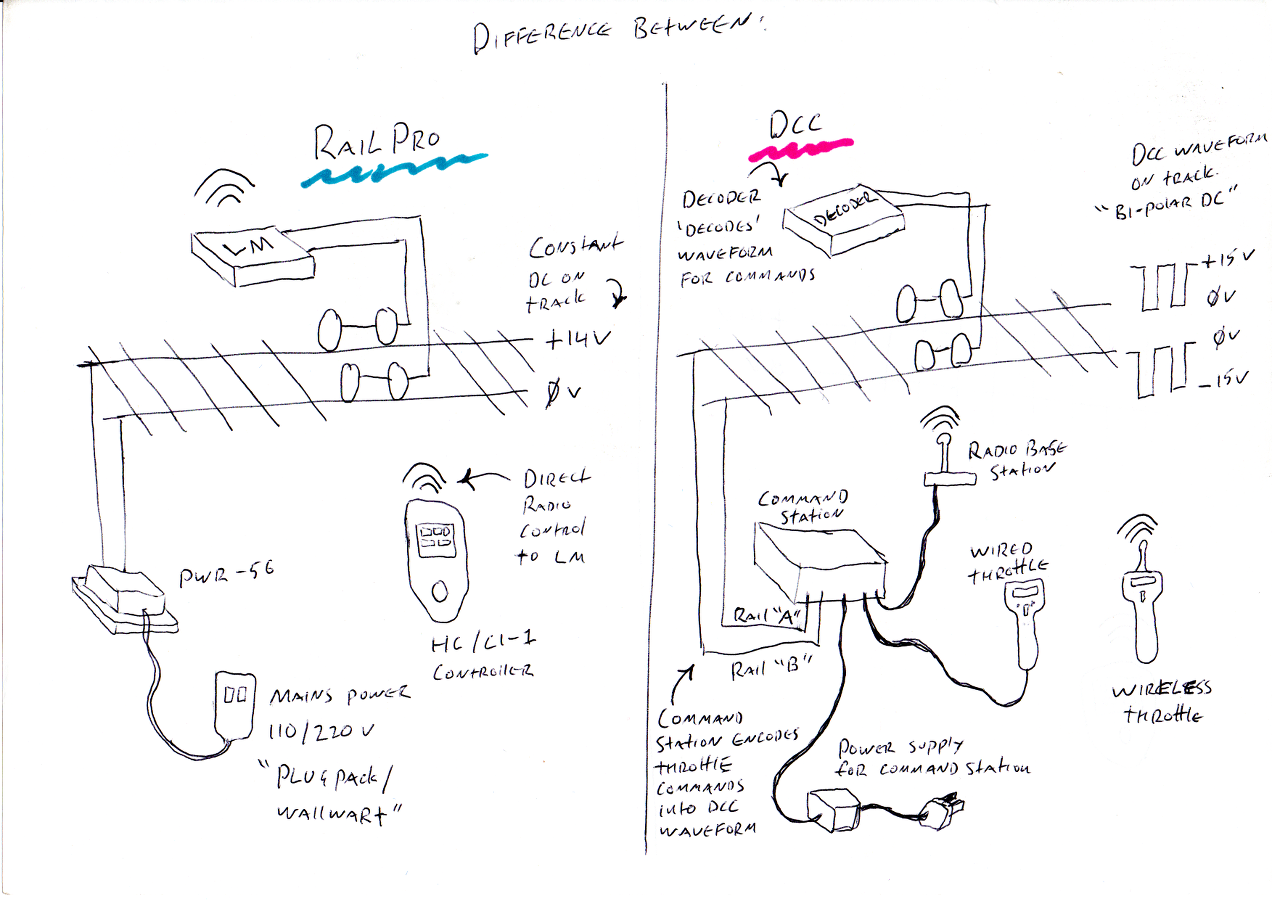 DIFFERENCE BETWEEN:
RAILPRO
LM
CONSTANT
DC ON
TRACK
+14V
0V
PWR-56
DIRECT
RADIO
CONTROL
TO LM
HC/CI-1
CONTROLLER
MAINS POWER
110/220 V
"PLUGPACK/
WALLWART"
DCC
DECODER
'DECODES'
WAVEFORM
FOR COMMANDS
DECODER
DCC WAVEFORM
ON TRACK.
"BI-POLAR DC"
+15V
0V
0V
-15V
RADIO BASE
STATION
COMMAND
STATION
WIRED
THROTTLE
RAIL "A"
RAIL "B"
WIRELESS
THROTTLE
COMMAND
STATION ENCODES
THROTTLE
COMMANDS
INTO DCC
WAVEFORM
POWER SUPPLY
FOR COMMAND STATION